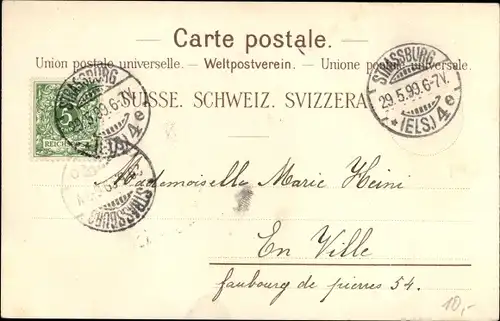 Carte postale.
Union postale universelle. – Weltpostverein. – Unione postale universale.
SUISSE. SCHWEIZ. SVIZZERA
STRASSBURG
29.5.99.6-7V.
*(ELS.) 4e
STRASSBURG
29.5.99.6-7V.
*(ELS.) 4e
5
REICHS
STRASSBURG
Mademoiselle Marie Heini
En Ville
faubourg de pierres 54.
10,-